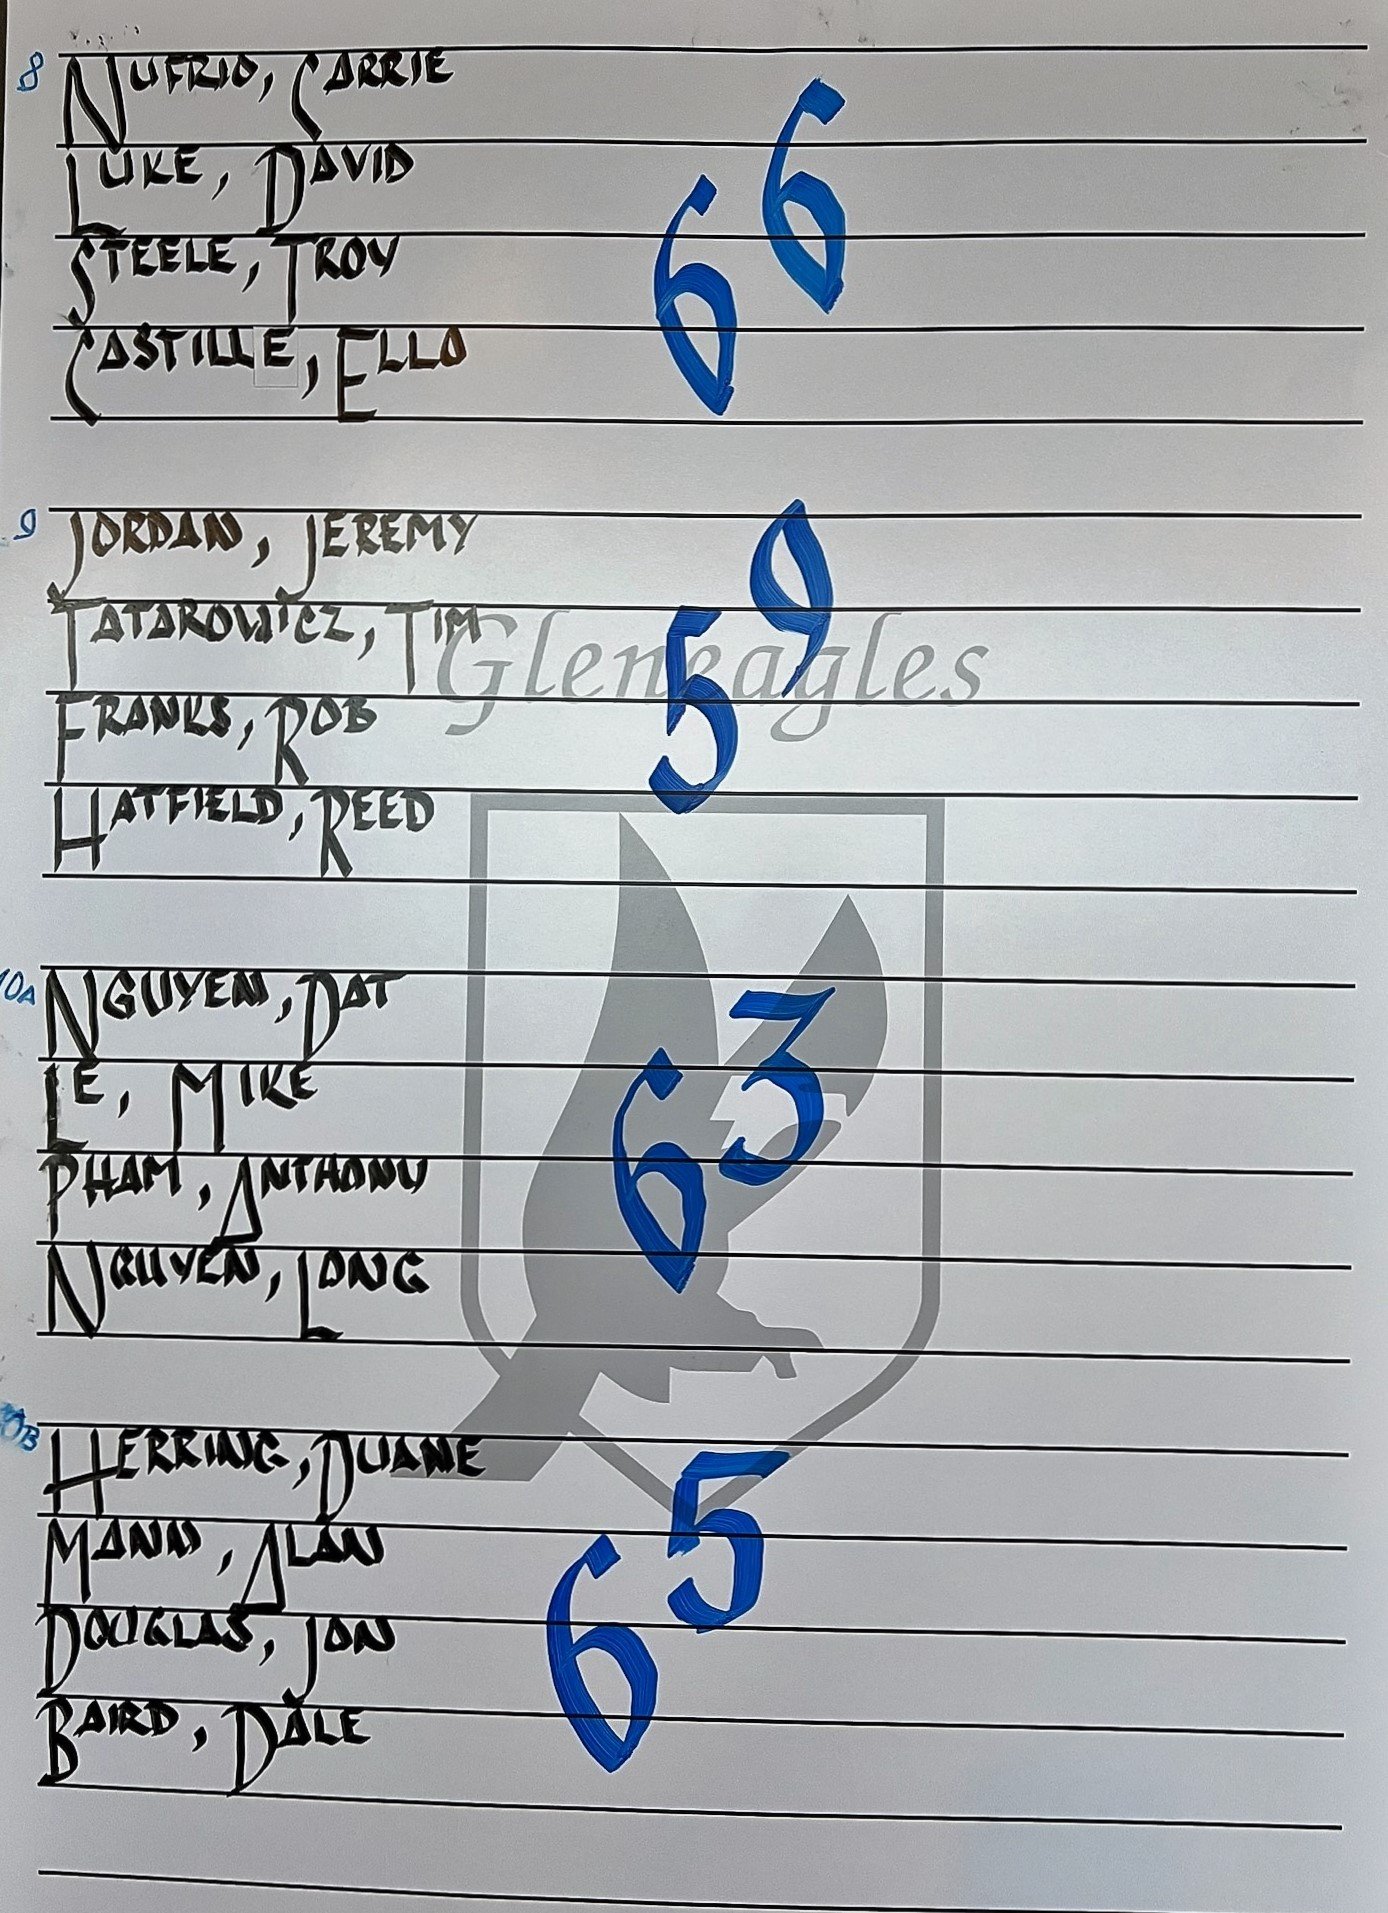 8 NUFRIO, CARRIE
LUKE, DAVID
STEELE, TROY
CASTILLE, ELLO
66
9 JORDAN, JEREMY
TATAROWICZ, TIM
FRANKS, ROB
HATFIELD, REED
59
Gleneagles
10A NGUYEN, DAT
LE, MIKE
PHAM, ANTHONY
NGUYEN, LONG
63
10B HERRING, DUANE
MANN, ALAN
DOUGLAS, JON
BAIRD, DALE
65